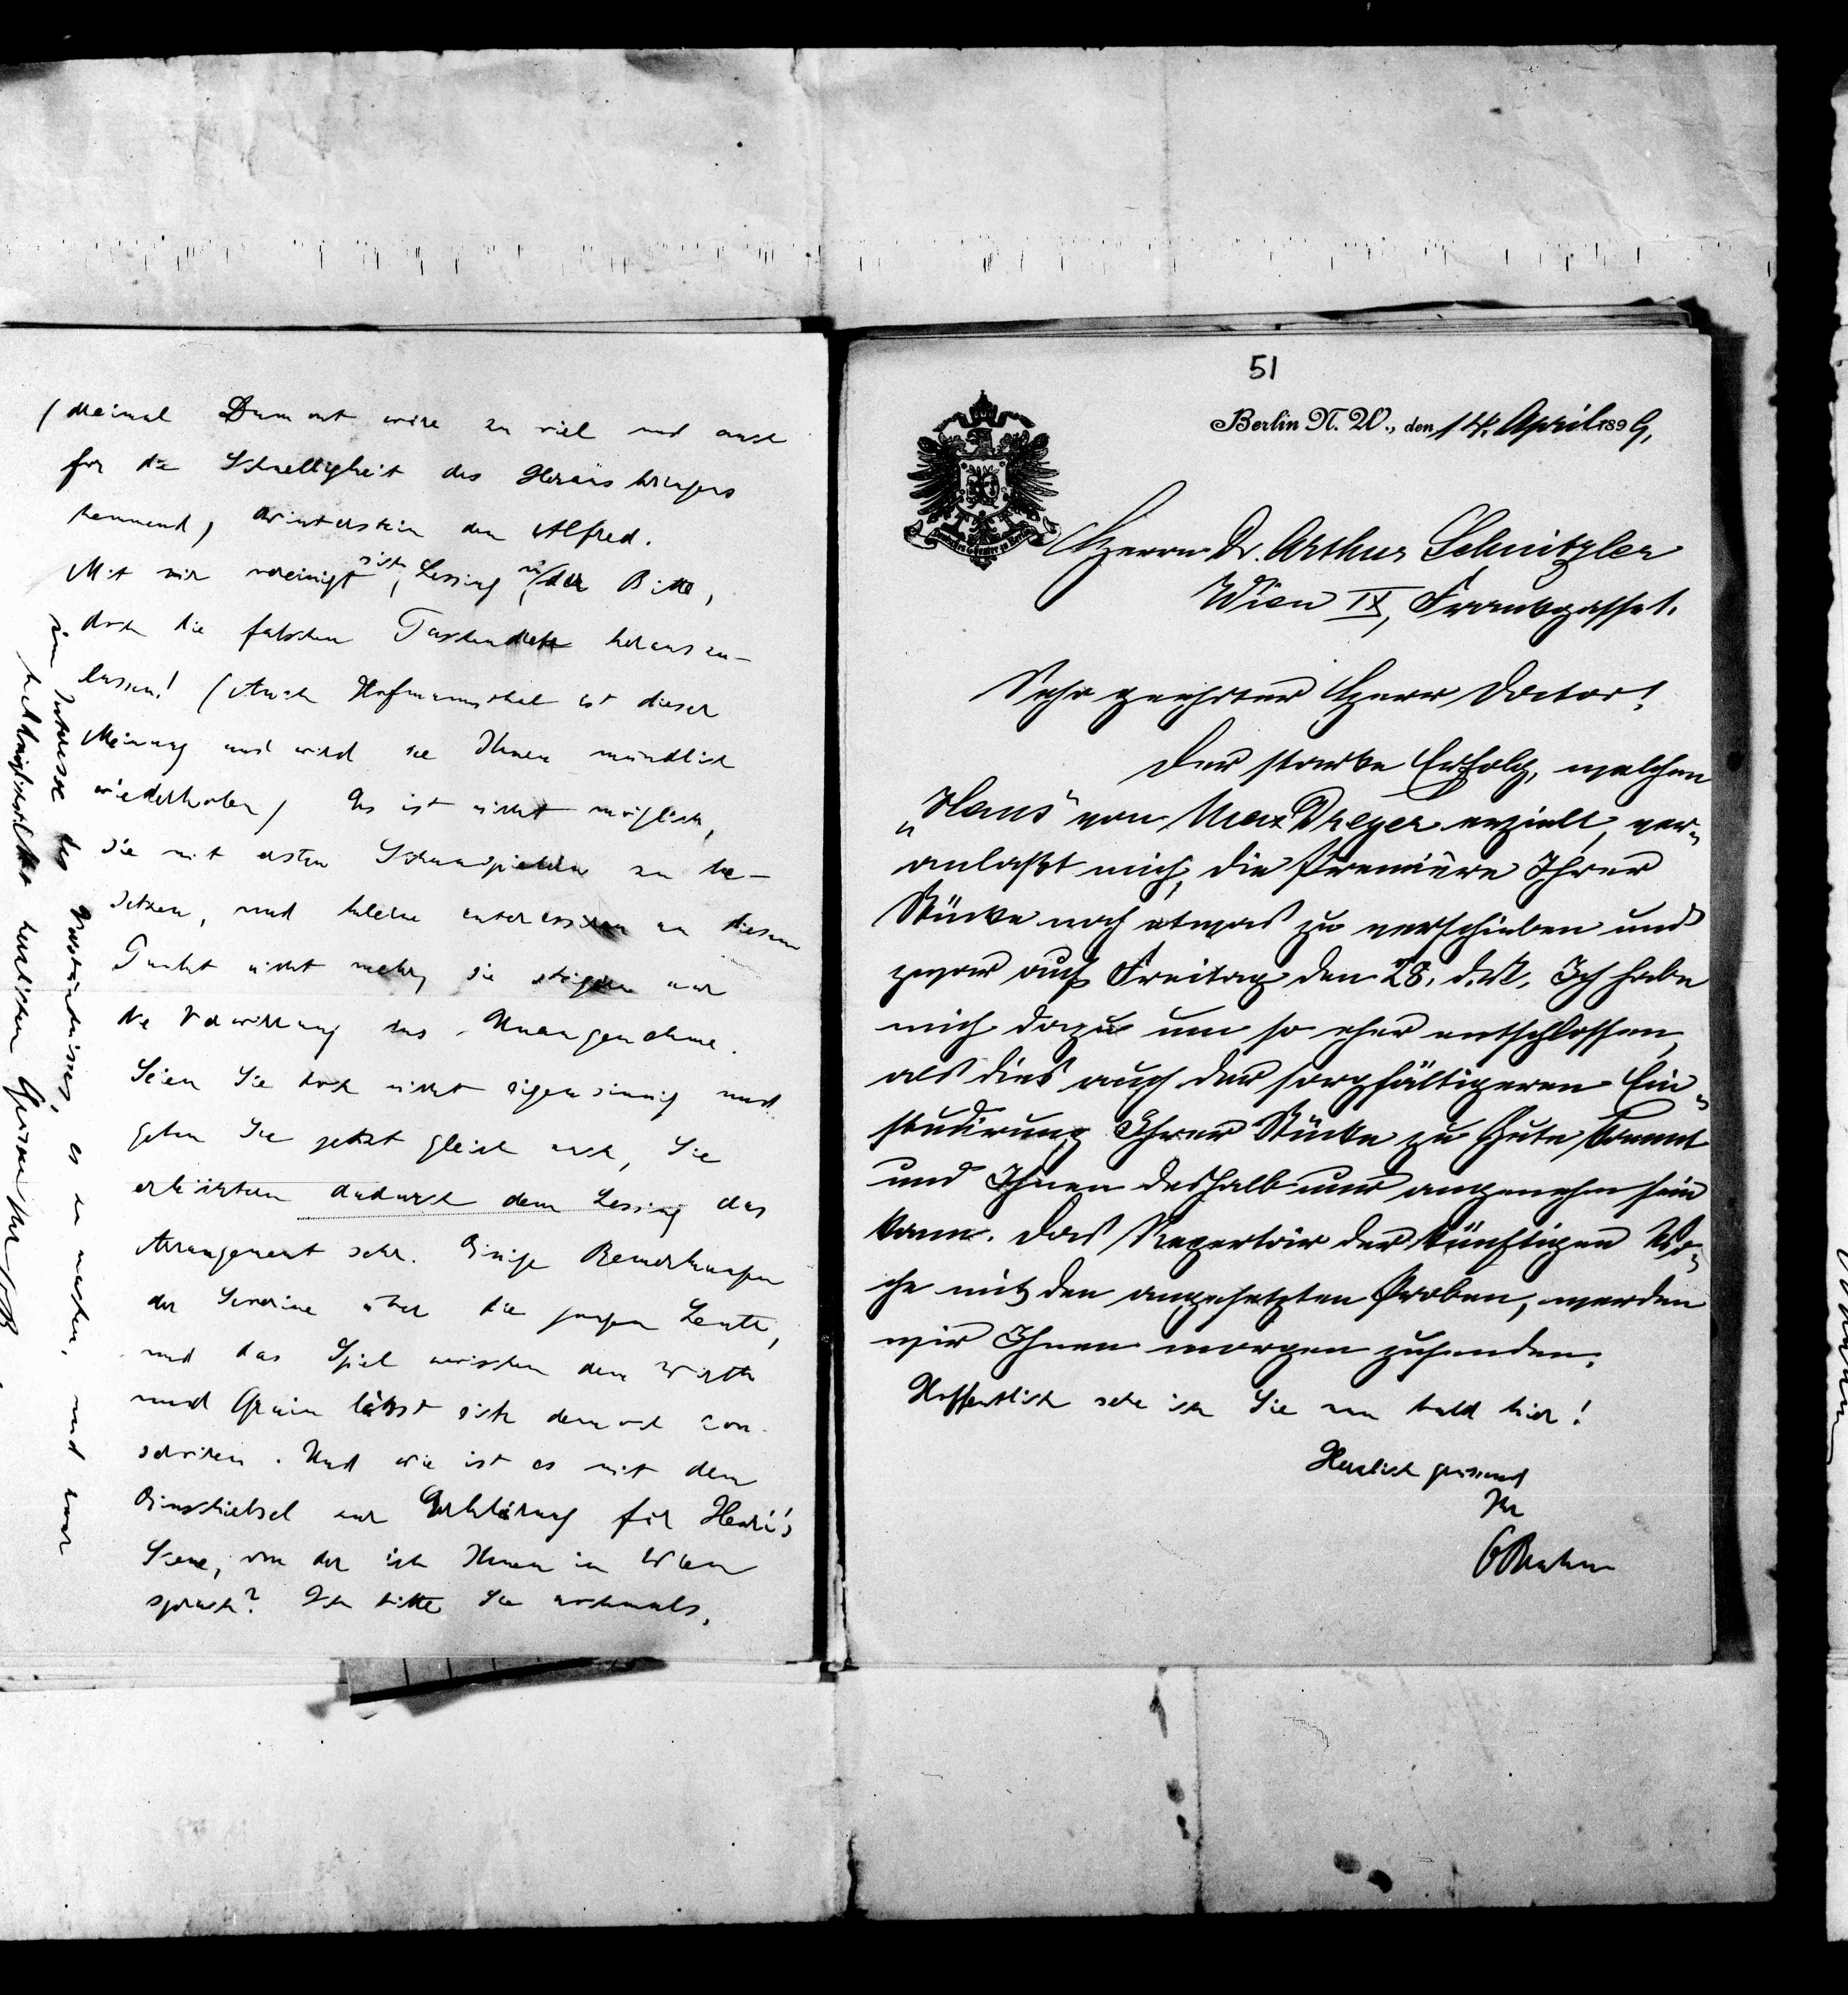 (dreimal Dumont wäre zu viel und auch
für die Schnelligkeit des Herausbringens
hemmend), Winterstein den Alfred.
Mit mir vereinigt sich, Lessing, in der Bitte,
doch die falschen Taschendiebe herauszu-
lassen! (Auch Hofmannsthal ist dieser
Meinung und wird sie Ihnen mündlich
wiederholen) Es ist nicht möglich,
sie mit ersten Schauspielern zu be-
setzen, und kleine interessiren an diesem
Punkt nicht mehr, sie steigern nur
die Verwirrung ins Unangenehme.
Seien Sie doch nicht eigensinnig und
geben Sie jetzt gleich nach, Sie
erleichtern dadurch dem Lessing das
Arrangement sehr. Einige Bemerkungen
der Severine über die jungen Leute,
und das Spiel zwischen dem Wirth
und Grain lässt sich dennoch con-
serviren. Und wie ist es mit dem
Einschiebsel zur Erklärung für Henri's
Scene, von der ich Ihnen in Wien
sprach? Ich bitte Sie nochmals,
im Interesse des Verständnisses, es zu machen, und zwar
herzlichen Grüssen Ihr OB
51
Berlin N. W., den 14. April 1899,
Deutsches Theater zu Berlin
Herrn Dr. Arthur Schnitzler
Wien IX, Frankgasse 1.
Sehr geehrter Herr Doctor!
Der starke Erfolg, welchen
„Hans“ von Max Dreyer erzielt, ver-
anlaßt mich, die Première Ihrer
Stücke noch etwas zu verschieben und
zwar auf Freitag den 28. d. M. Ich habe
mich dazu um so eher entschlossen,
als dies auch der sorgfältigeren Ein-
studirung Ihrer Stücke zu Gute kommt
und Ihnen deshalb nur angenehm sein
kann. Das Repertoir der künftigen Wo-
che mit den angesetzten Proben, werden
wir Ihnen morgen zusenden.
Hoffentlich sehe ich Sie nun bald hier!
Herzlich grüssend
Ihr
OBrahm